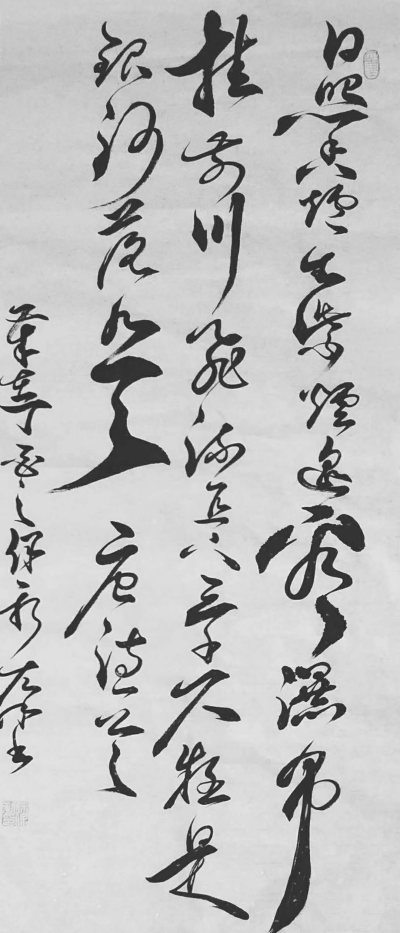 日照香爐生紫煙遙看瀑布
挂前川飛流直下三千尺疑是
銀河落九天 唐詩